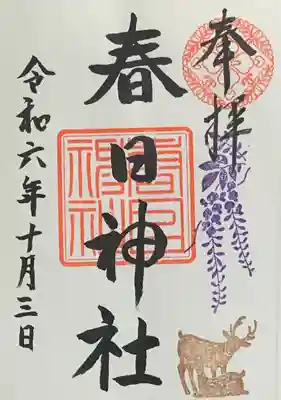 奉拝
春日神社
令和六年十月三日
春日神社